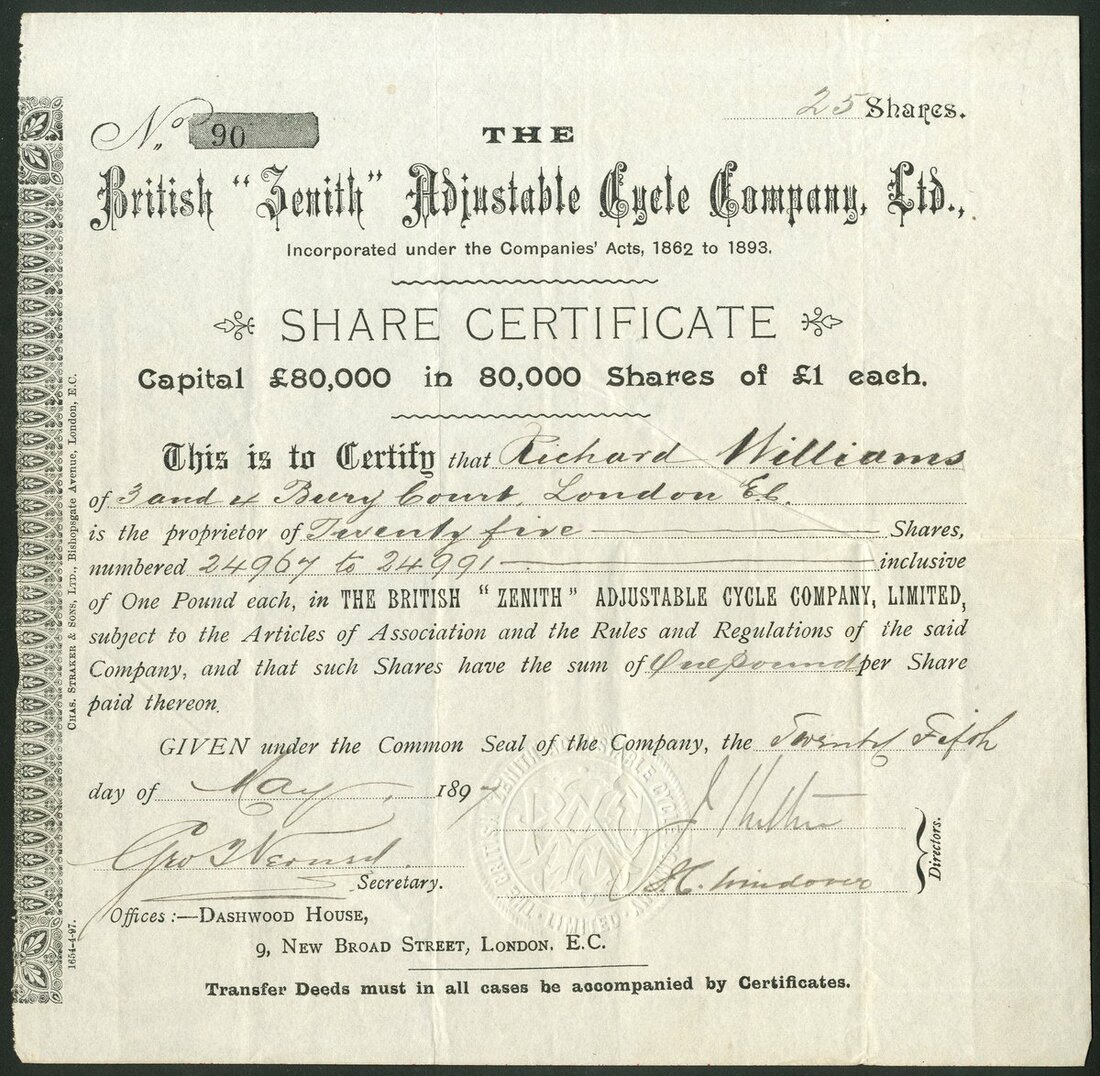 25 Shares.
No. 90
THE
British "Zenith" Adjustable Cycle Company, Ltd.,
Incorporated under the Companies' Acts, 1862 to 1893.
SHARE CERTIFICATE
Capital £80,000 in 80,000 Shares of £1 each.
This is to Certify that Richard Williams
of 3 and 4 Bury Court, London E.C.
is the proprietor of Twenty five Shares,
numbered 24967 to 24991 inclusive
of One Pound each, in THE BRITISH "ZENITH" ADJUSTABLE CYCLE COMPANY, LIMITED,
subject to the Articles of Association and the Rules and Regulations of the said
Company, and that such Shares have the sum of One pound per Share
paid thereon.
GIVEN under the Common Seal of the Company, the Twenty Fifth
day of May, 1897
Directors.
Secretary.
Offices:—DASHWOOD HOUSE,
9, NEW BROAD STREET, LONDON, E.C.
Transfer Deeds must in all cases be accompanied by Certificates.
CHAS. STRAKER & SONS, LTD., Bishopsgate Avenue, London, E.C.
1654-4-97.